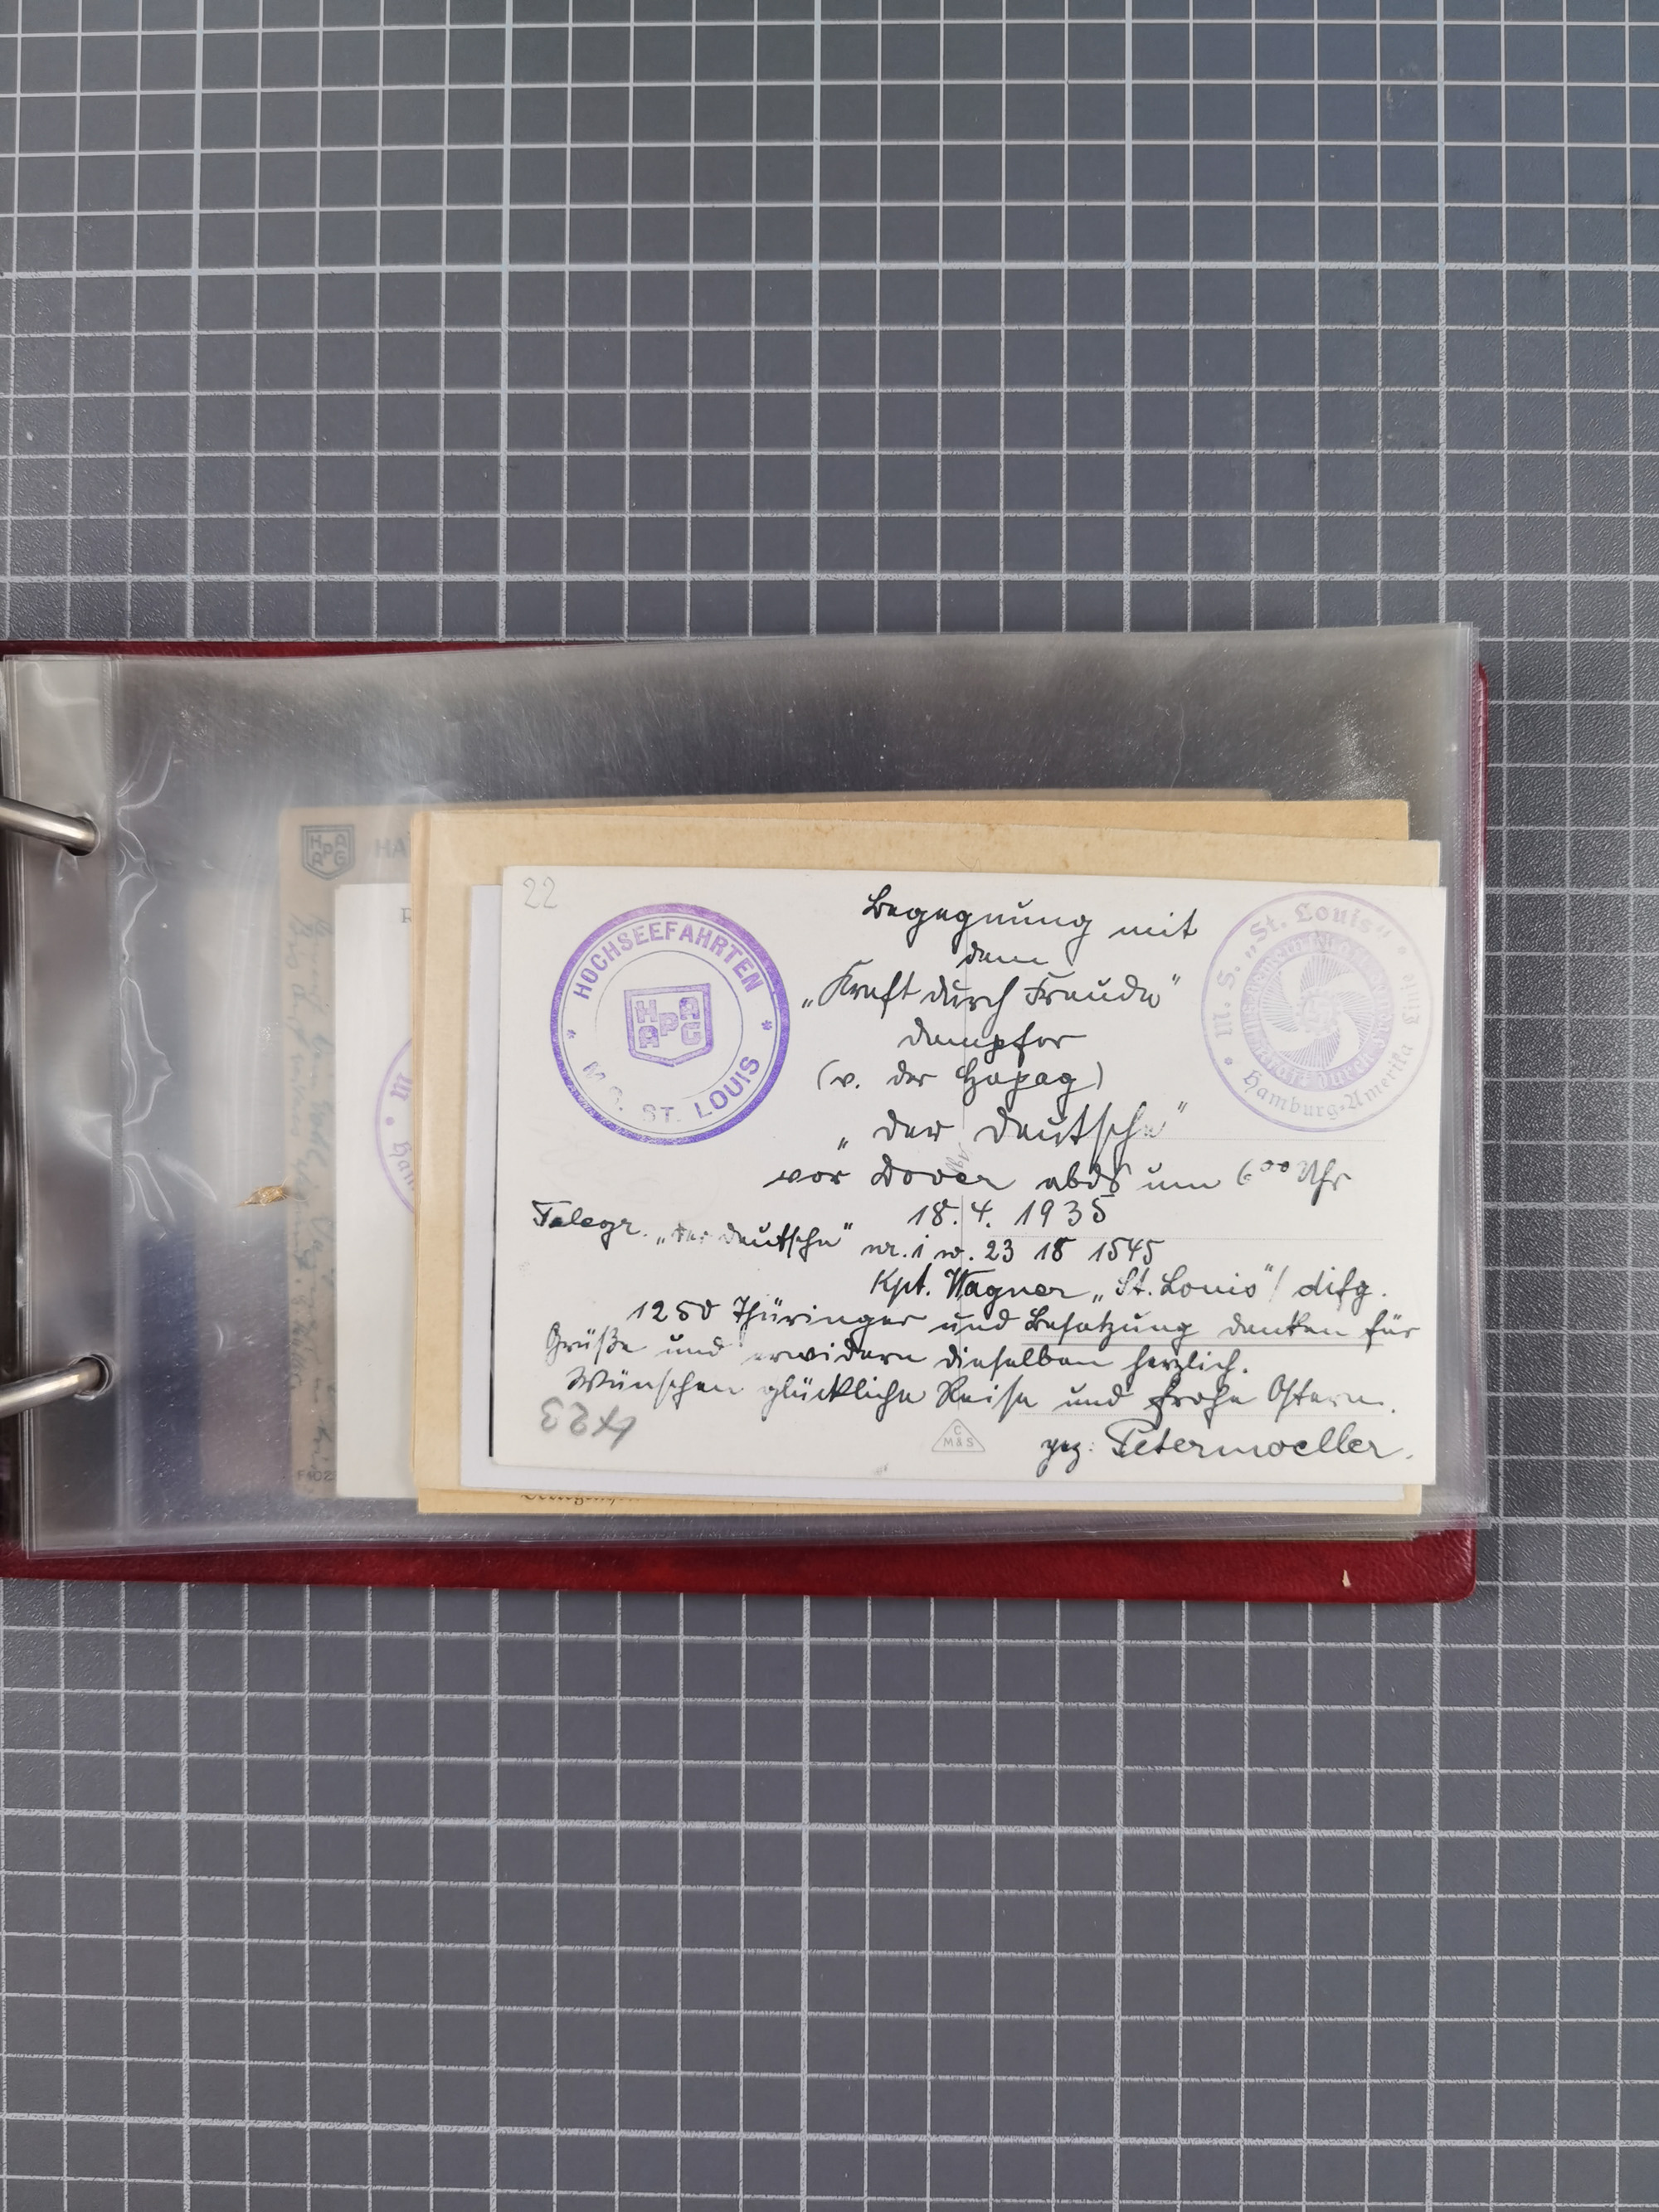 22
HOCHSEEFAHRTEN
HAPAG
M.S. ST. LOUIS
M. S. „St. Louis“
Hamburg-Amerika Linie
Begegnung mit
dem
„Kraft durch Freude“
dampfer
(v. der Hapag)
„der deutsche“
vor Dover abds um 6⁰⁰ Uhr
18. 4. 1935
Telegr. „der deutsche“ nr. 1 w. 23 18 1545
Kpt. Wagner „St. Louis“/ difg.
1250 Thüringer und Besatzung danken für
Grüße und erwidern dieselben herzlich.
Wünschen glückliche Reise und frohe Ostern.
gez: Petermoeller.
C
M&S
HAPAG
HA
R
F402